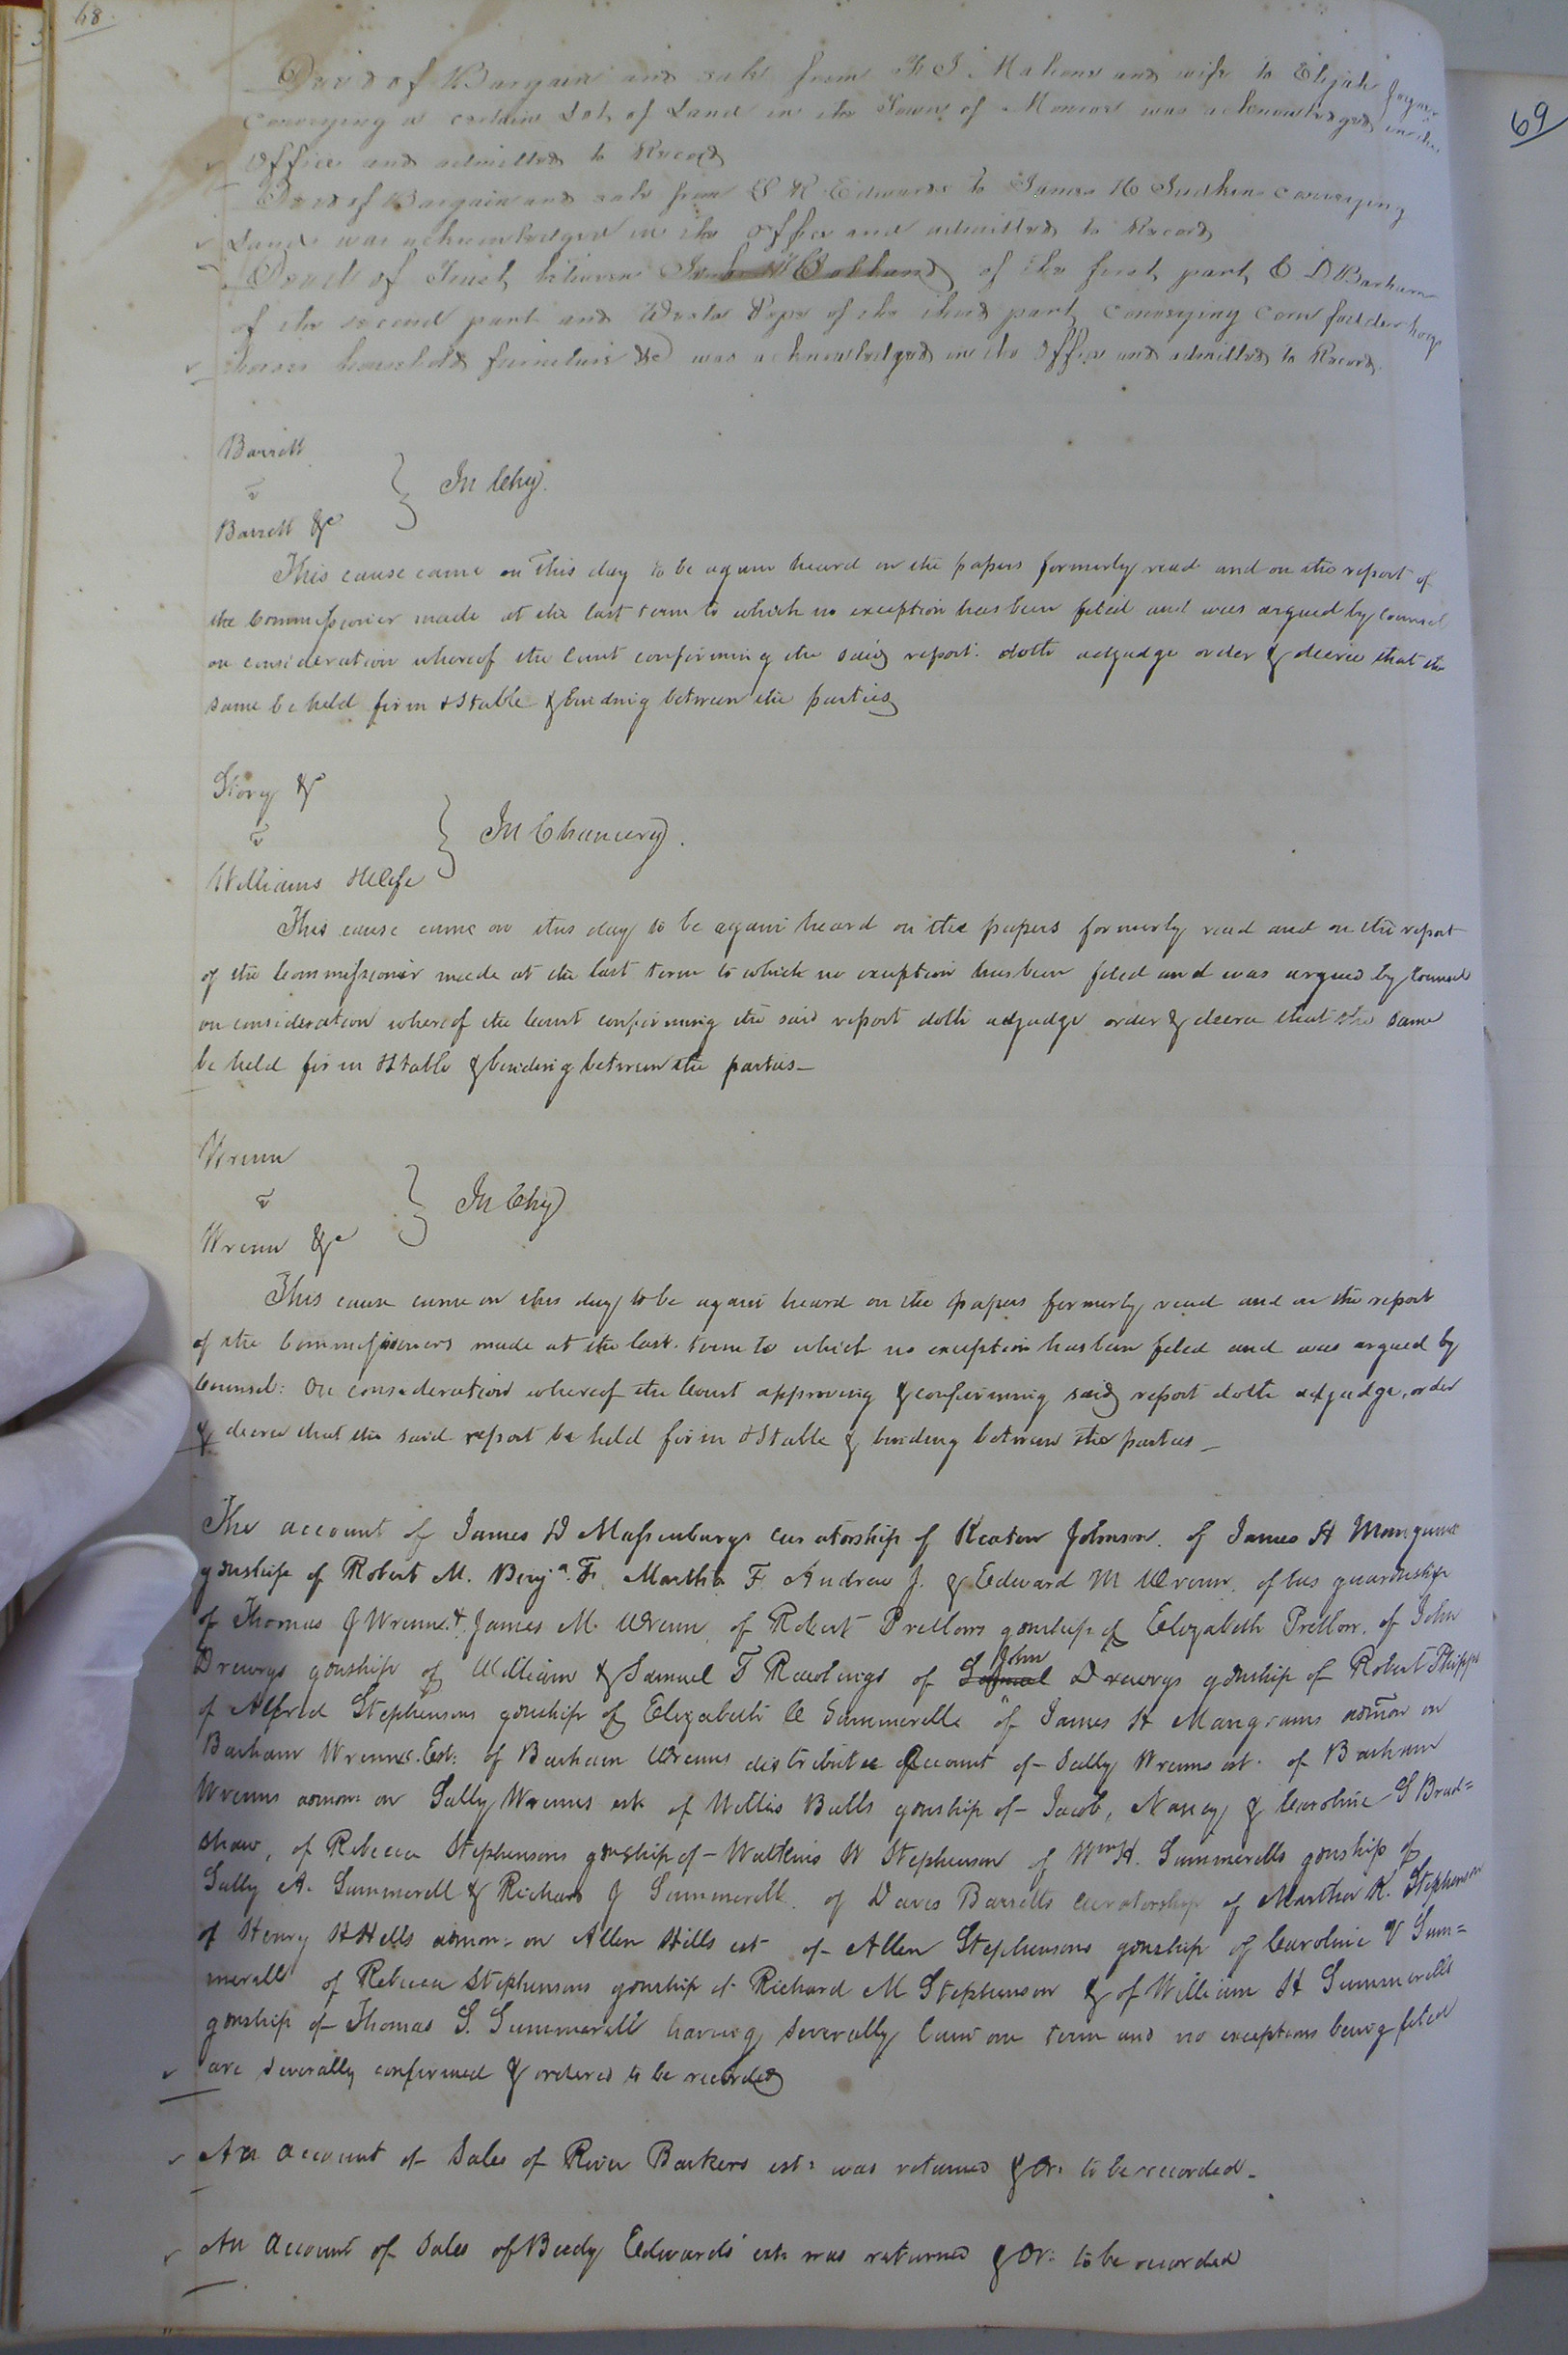 68.
69
Deed of Bargain and sale from F S Mahone and wife to Elijah
conveying a certain Lot of Land in the Town of Monroe was acknowledged in the
office and admitted to Record
Deed of Bargain and sale from R Edwards to James H Judkins conveying
Lands was acknowledged in the office and admitted to Record
Deed of Trust between of the first part, C D Barham
of the second part and Pope of the third part conveying Corn fodder hogs
horses household furniture &c was acknowledged in the office and admitted to Record.
Barrett
v
Barrett &c
In Chy.
This cause came on this day to be again heard on the papers formerly read and on the report of
the Commissioner made at the last term to which no exception has been filed and was argued by counsel
on consideration whereof the Court confirming the said report. doth adjudge order & decree that the
same be held firm & Stable & binding between the parties
Story &
v
Williams & Wife
In Chancery.
This cause came on this day to be again heard on the papers formerly read and on the report
of the Commissioner made at the last term to which no exception has been filed and was argued by Counsel
on consideration whereof the Court confirming the said report doth adjudge order & decree that the same
be held firm & Stable & binding between the parties—
Wrenn
v
Wrenn &c
In Chy
This cause came on this day to be again heard on the papers formerly read and on the report
of the Commissioners made at the last term to which no exception has been filed and was argued by
Counsel: On consideration whereof the Court approving & confirming said report doth adjudge, order
& decree that the said report be held firm & Stable & binding between the parties—
The account of James D Massenburgs curatorship of Keaton Johnson. of James H Mangums
gdnship of Robert M. Benja. F. Martha F. Andrew J. & Edward M Wrenn, of his guardnship
of Thomas J Wrenn & James M. Wrenn, of Robert Pretlows gdnship of Elizabeth Pretlow, of John
Drewrys gdnship of William & Samuel T Rawlings of Samuel John Drewrys gdnship of Robert Phipps
of Alfred Stephensons gdnship of Elizabeth C Summerelle of James H Mangrams admon on
Barham Wrenns. Est: of Barham Wrenns distributee Account of Sally Wrenns est. of Barham
Wrenns admon: on Sally Wrenns est. of Willis Bulls gdnship of Jacob, Nancy & Caroline S Brad=
shaw, of Rebecca Stephensons gdnship of Watkins W Stephenson of Wm H. Summerells gdnship of
Sally A. Summerell & Richard J Summerell. of Davis Barretts curatorship of Martha R. Stephenson
of Henry H Hills admon: on Allen Hills est of Allen Stephensons gdnship of Caroline V Sum=
merell of Rebecca Stephensons gdnship of Richard M Stephenson & of William H Summerells
gdnship of Thomas S. Summerell having severally laid one term and no exceptions being filed
are severally confirmed & ordered to be recorded
An account of Sales of River Barkers est: was returned & Or: to be recorded-
An account of Sales of Beedy Edwards' est: was returned & Or: to be recorded